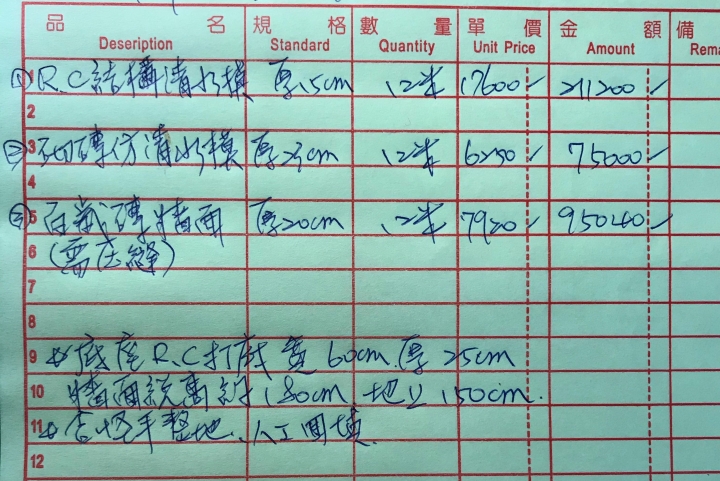 品 名 規 格 數 量 單 價 金 額 備
Deseription Standard Quantity Unit Price Amount Rema
① R.C結構清水模 厚15cm 12米 17600 211200
2
② 3 砌磚仿清水模 厚24cm 12米 6250 75000
4
③ 5 磚牆面 厚20cm 12米 7920 95040
6 (需压縫)
7
8
9 底座R.C打底 寬60cm.厚25cm
10 牆面總高約180cm 地上150cm.
11 含怪手整地.人工回填
12